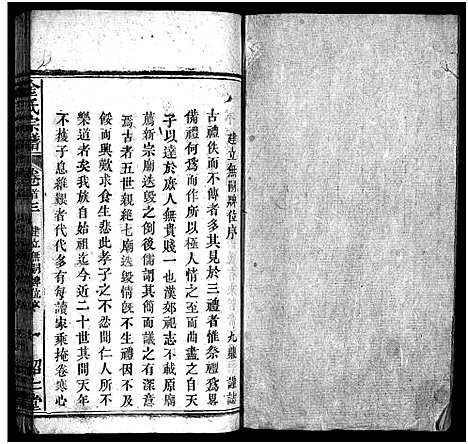 建立無嗣牌位序
九疇 謹誌
古禮佚而不傳者多其見於三禮者惟祭禮為畧
備禮何為而作所以順人情之至而曲盡之自天
子以達於庶人無貴賤一也漢郊祀志不載原廟
薦新宗廟迭毀之倒後儒謂其簡而議之有深意
焉古者五世親絕七廟迭毀情旣不生禮因不立
倐而興歎求食生悲此孝子之不忍聞仁人所不
樂道者矣我族自始祖迄今近二十世其間天年
不獲子息維艱者代代多有每讀家乘掩卷寒心
氏宗譜
卷首三
建立無嗣牌位序
十
昭仁堂